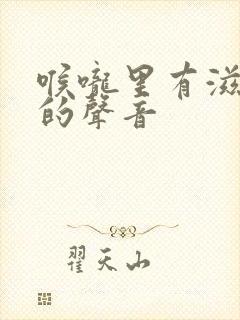 喉嚨里有滋
的聲音
翟天山